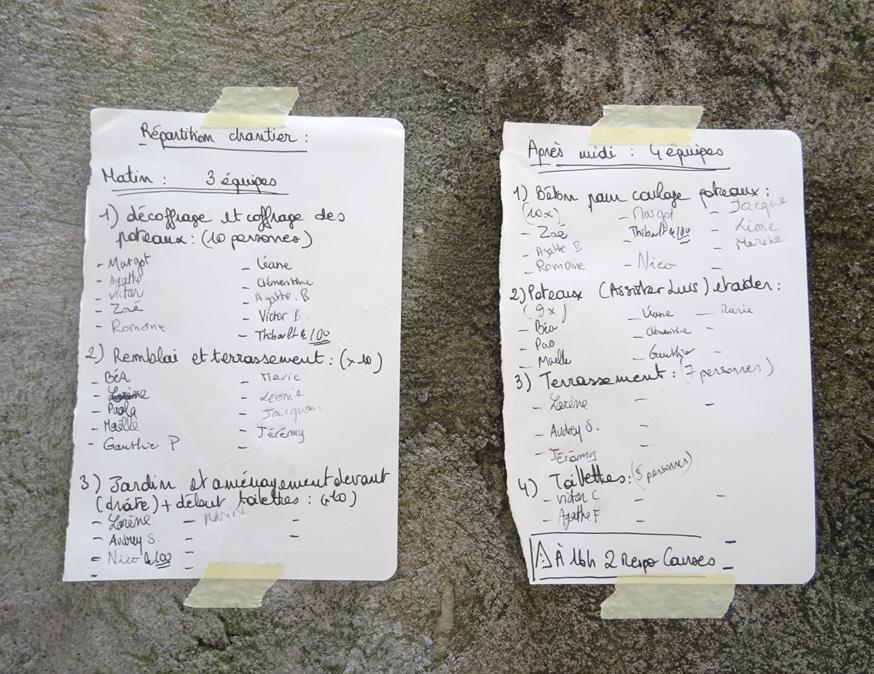 Répartition chantier :
Matin : 3 équipes
1) décoffrage et coffrage des
poteaux : (10 personnes)
- Margot - Léane
- Agathe - Clémentine
- Victor - Agathe. B
- Zoé - Victor B.
- Romane - Thibault
2) Remblai et terrassement : (x 10)
- BéA - Marie
- Lorène - Léonie
- Paola - Jacques
- Maëlle - Jérémy
- Gauthier P
3) Jardin et aménagement devant
+ début toilettes : (x10)
- Lorène -
- Audrey S. - -
- Nico -
-
Après midi : 4 équipes
1) Béton pour coulage poteaux :
(10x) - Margot - Jacques
- Zoé - Thibault - Léonie
- Agathe B - Marine
- Romane - Nico
2) Poteaux (Assister Luis) et aider :
(9x) - Léane - Marie
- Béa - Clémentine
- Pao - Gauthier
- Maëlle
3) Terrassement : (7 personnes)
- Lorène - -
- Audrey S. -
- Jérémy -
4) Toilettes : (5 personnes)
- Victor C - -
- Agathe F -
⚠ À 16h 2 Respo Courses -
-